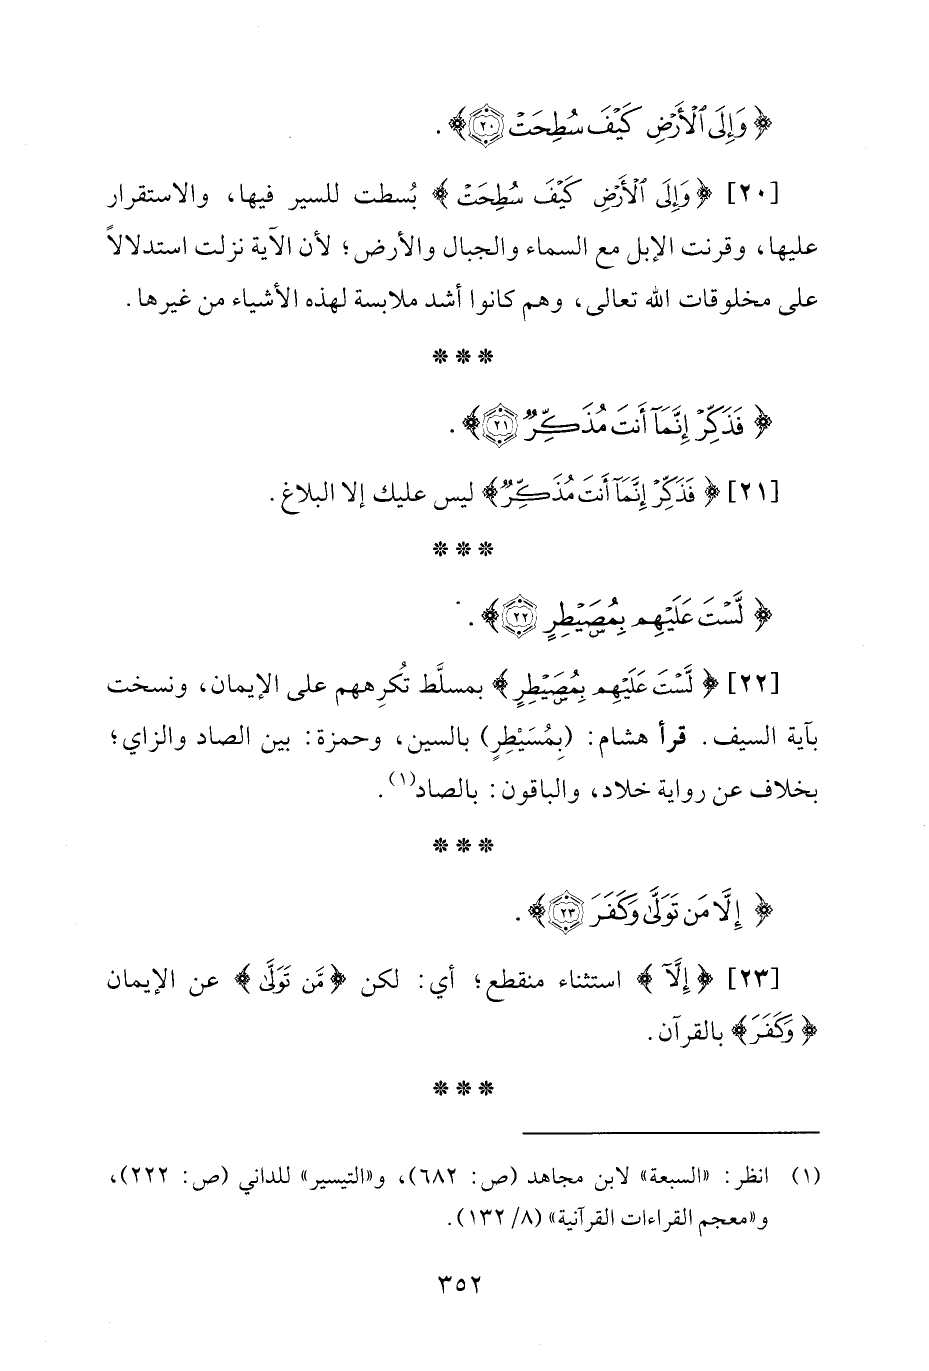 ﴿ وَإِلَى ٱلْأَرْضِ كَيْفَ سُطِحَتْ ٢٠﴾ .
[٢٠] ﴿ وَإِلَى ٱلْأَرْضِ كَيْفَ سُطِحَتْ ﴾ بُسطت للسير فيها، والاستقرار
عليها، وقرنت الإبل مع السماء والجبال والأرض؛ لأن الآية نزلت استدلالاً
على مخلوقات الله تعالى، وهم كانوا أشد ملابسة لهذه الأشياء من غيرها.
* * *
﴿ فَذَكِّرْ إِنَّمَآ أَنتَ مُذَكِّرٌ ٢١﴾ .
[٢١] ﴿ فَذَكِّرْ إِنَّمَآ أَنتَ مُذَكِّرٌ﴾ ليس عليك إلا البلاغ.
* * *
﴿ لَّسْتَ عَلَيْهِم بِمُصَيْطِرٍ ٢٢﴾ .
[٢٢] ﴿ لَّسْتَ عَلَيْهِم بِمُصَيْطِرٍ﴾ بمسلَّط تُكرِههم على الإيمان، ونسخت
بآية السيف. قرأ هشام: (بِمُسَيْطِرٍ) بالسين، وحمزة: بين الصاد والزاي؛
بخلاف عن رواية خلاد، والباقون: بالصاد(١).
* * *
﴿ إِلَّا مَن تَوَلَّىٰ وَكَفَرَ ٢٣﴾ .
[٢٣] ﴿إِلَّا ﴾ استثناء منقطع؛ أي: لكن ﴿مَّن تَوَلَّىٰ﴾ عن الإيمان
﴿ وَكَفَرَ﴾ بالقرآن.
* * *
(١) انظر: «السبعة» لابن مجاهد (ص: ٦٨٢)، و«التيسير» للداني (ص: ٢٢٢)،
و«معجم القراءات القرآنية» (٨/ ١٣٢).
٣٥٢